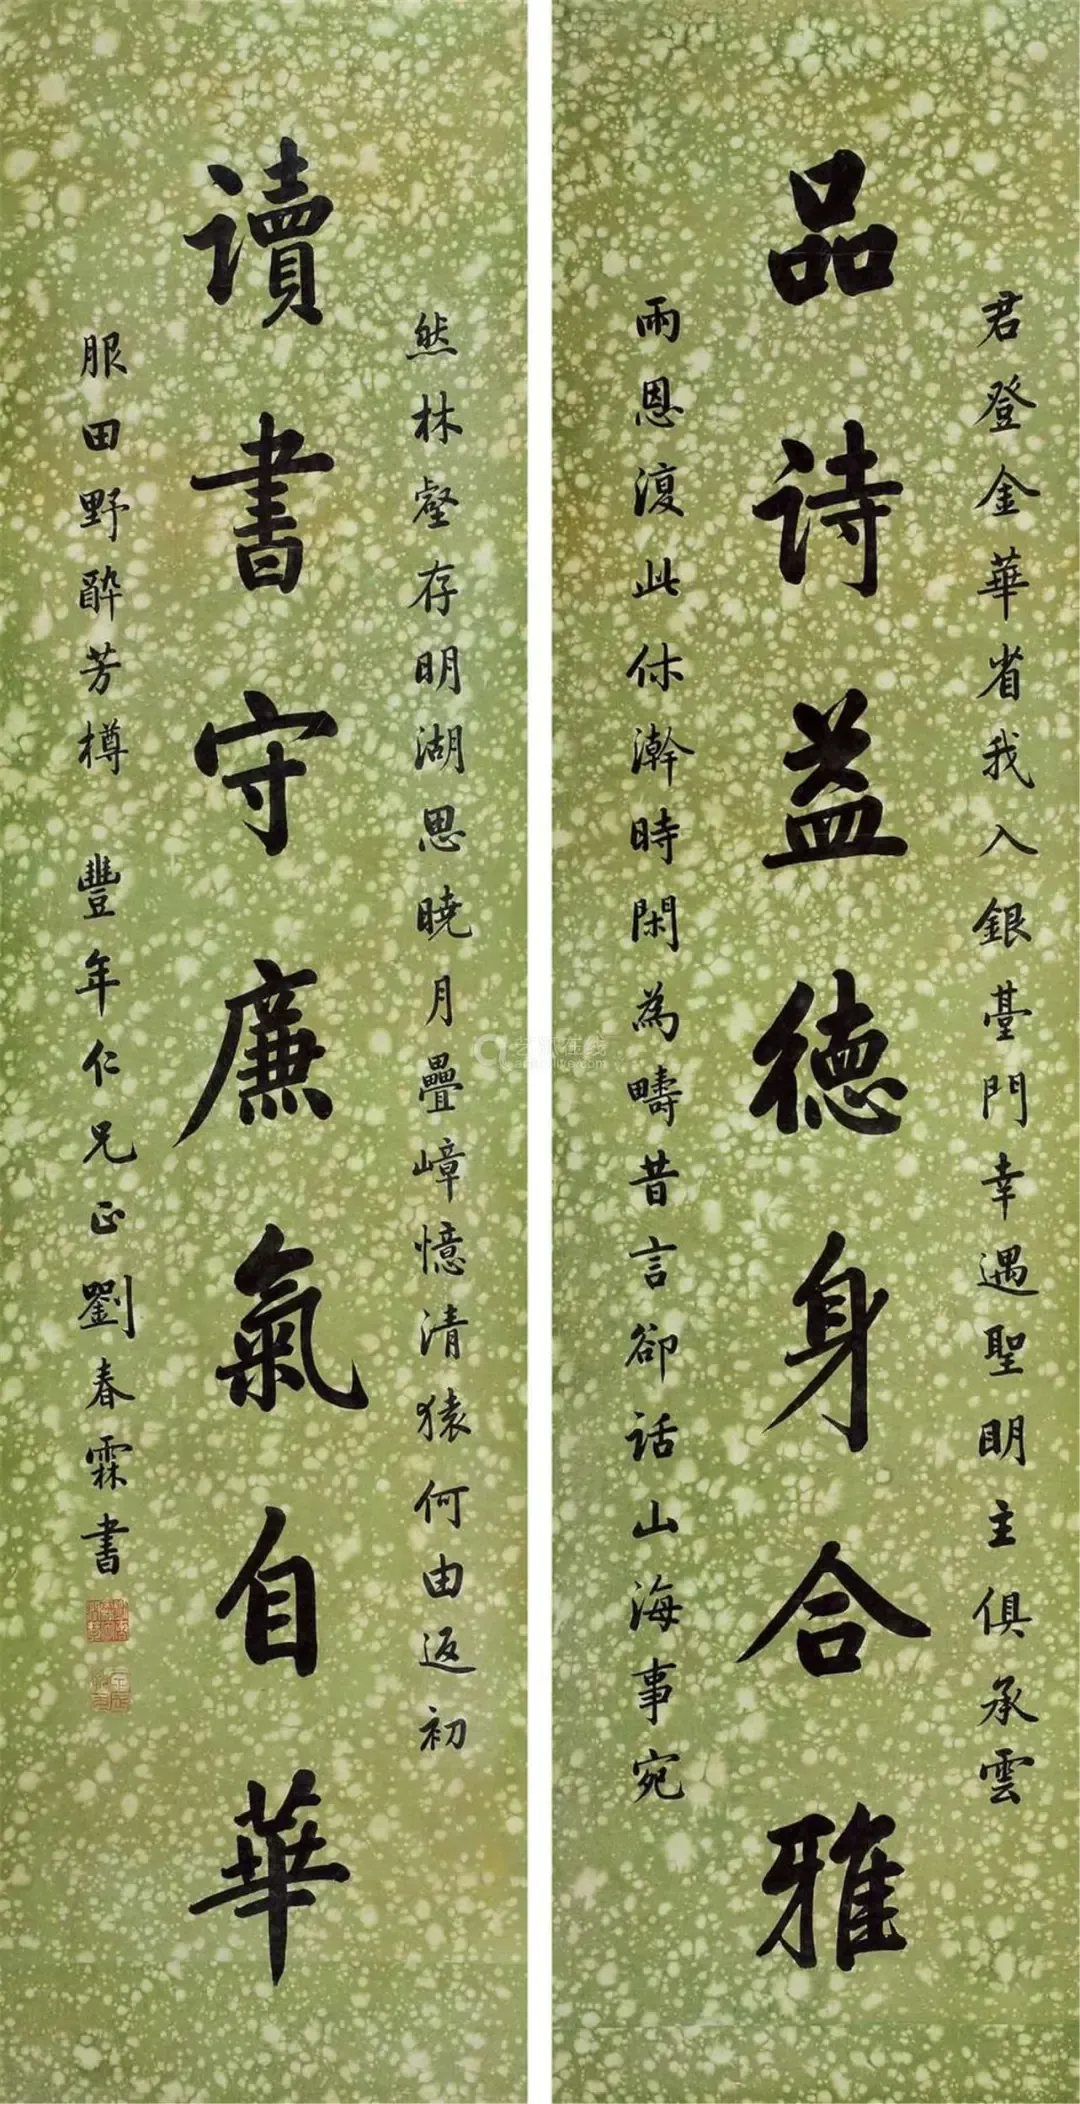 君登金華省我入銀臺門幸遇聖明主俱承雲
品詩益德身合雅
雨恩復此休澣時閑為疇昔言卻話山海事宛
然林壑存明湖思曉月疊嶂憶清猿何由返初
讀書守廉氣自華
服田野醉芳樽 豐年仁兄正 劉春霖書